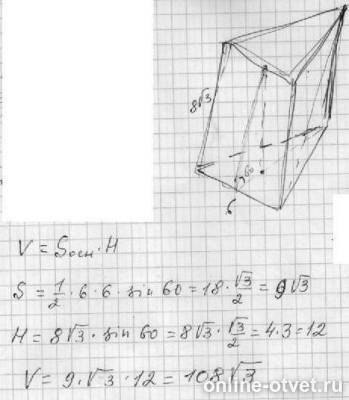 8√3
60
6
V = Sосн · H
S = 1/2 · 6 · 6 · sin 60 = 18 · √3/2 = 9√3
H = 8√3 · sin 60 = 8√3 · √3/2 = 4 · 3 = 12
V = 9 · √3 · 12 = 108√3
online-otvet.ru